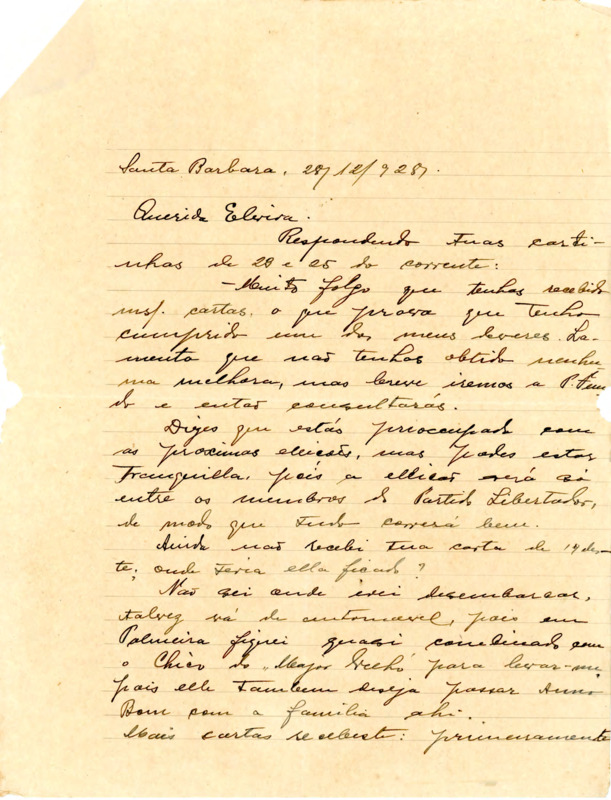 Santa Barbara, 28/12/928.
Querida Elvira.
Respondendo tuas carti-
nhas de 20 e 25 do corrente:
- Muito folgo que tenhas recebido
cartas, o que prova que tenho
cumprido um dos meus deveres. La-
mento que não tenhas obtido nenhu
ma melhora, mas breve iremos a P. Fun
do e então consultarás.
Dizes que estás preoccupada com
as proximas eleições, mas podes estar
tranquilla, pois a ellição será só
entre os membros do Partido Libertador,
de modo que tudo correrá bem.
Ainda não recebi tua carta de 14 des-
te; onde teria ella ficado?
Não sei onde irei desembarcar,
talvez vá de automovel, pois em
Palmeira fiquei quasi combinado com
o Chico do "Major para levar-me
pois elle tambem deseja passar Anno
Bom com a familia ahi.
Mais cartas recebeste: primeiramente